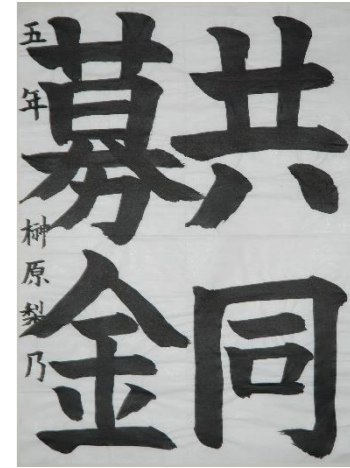 共同
募金
五年 榊原梨乃